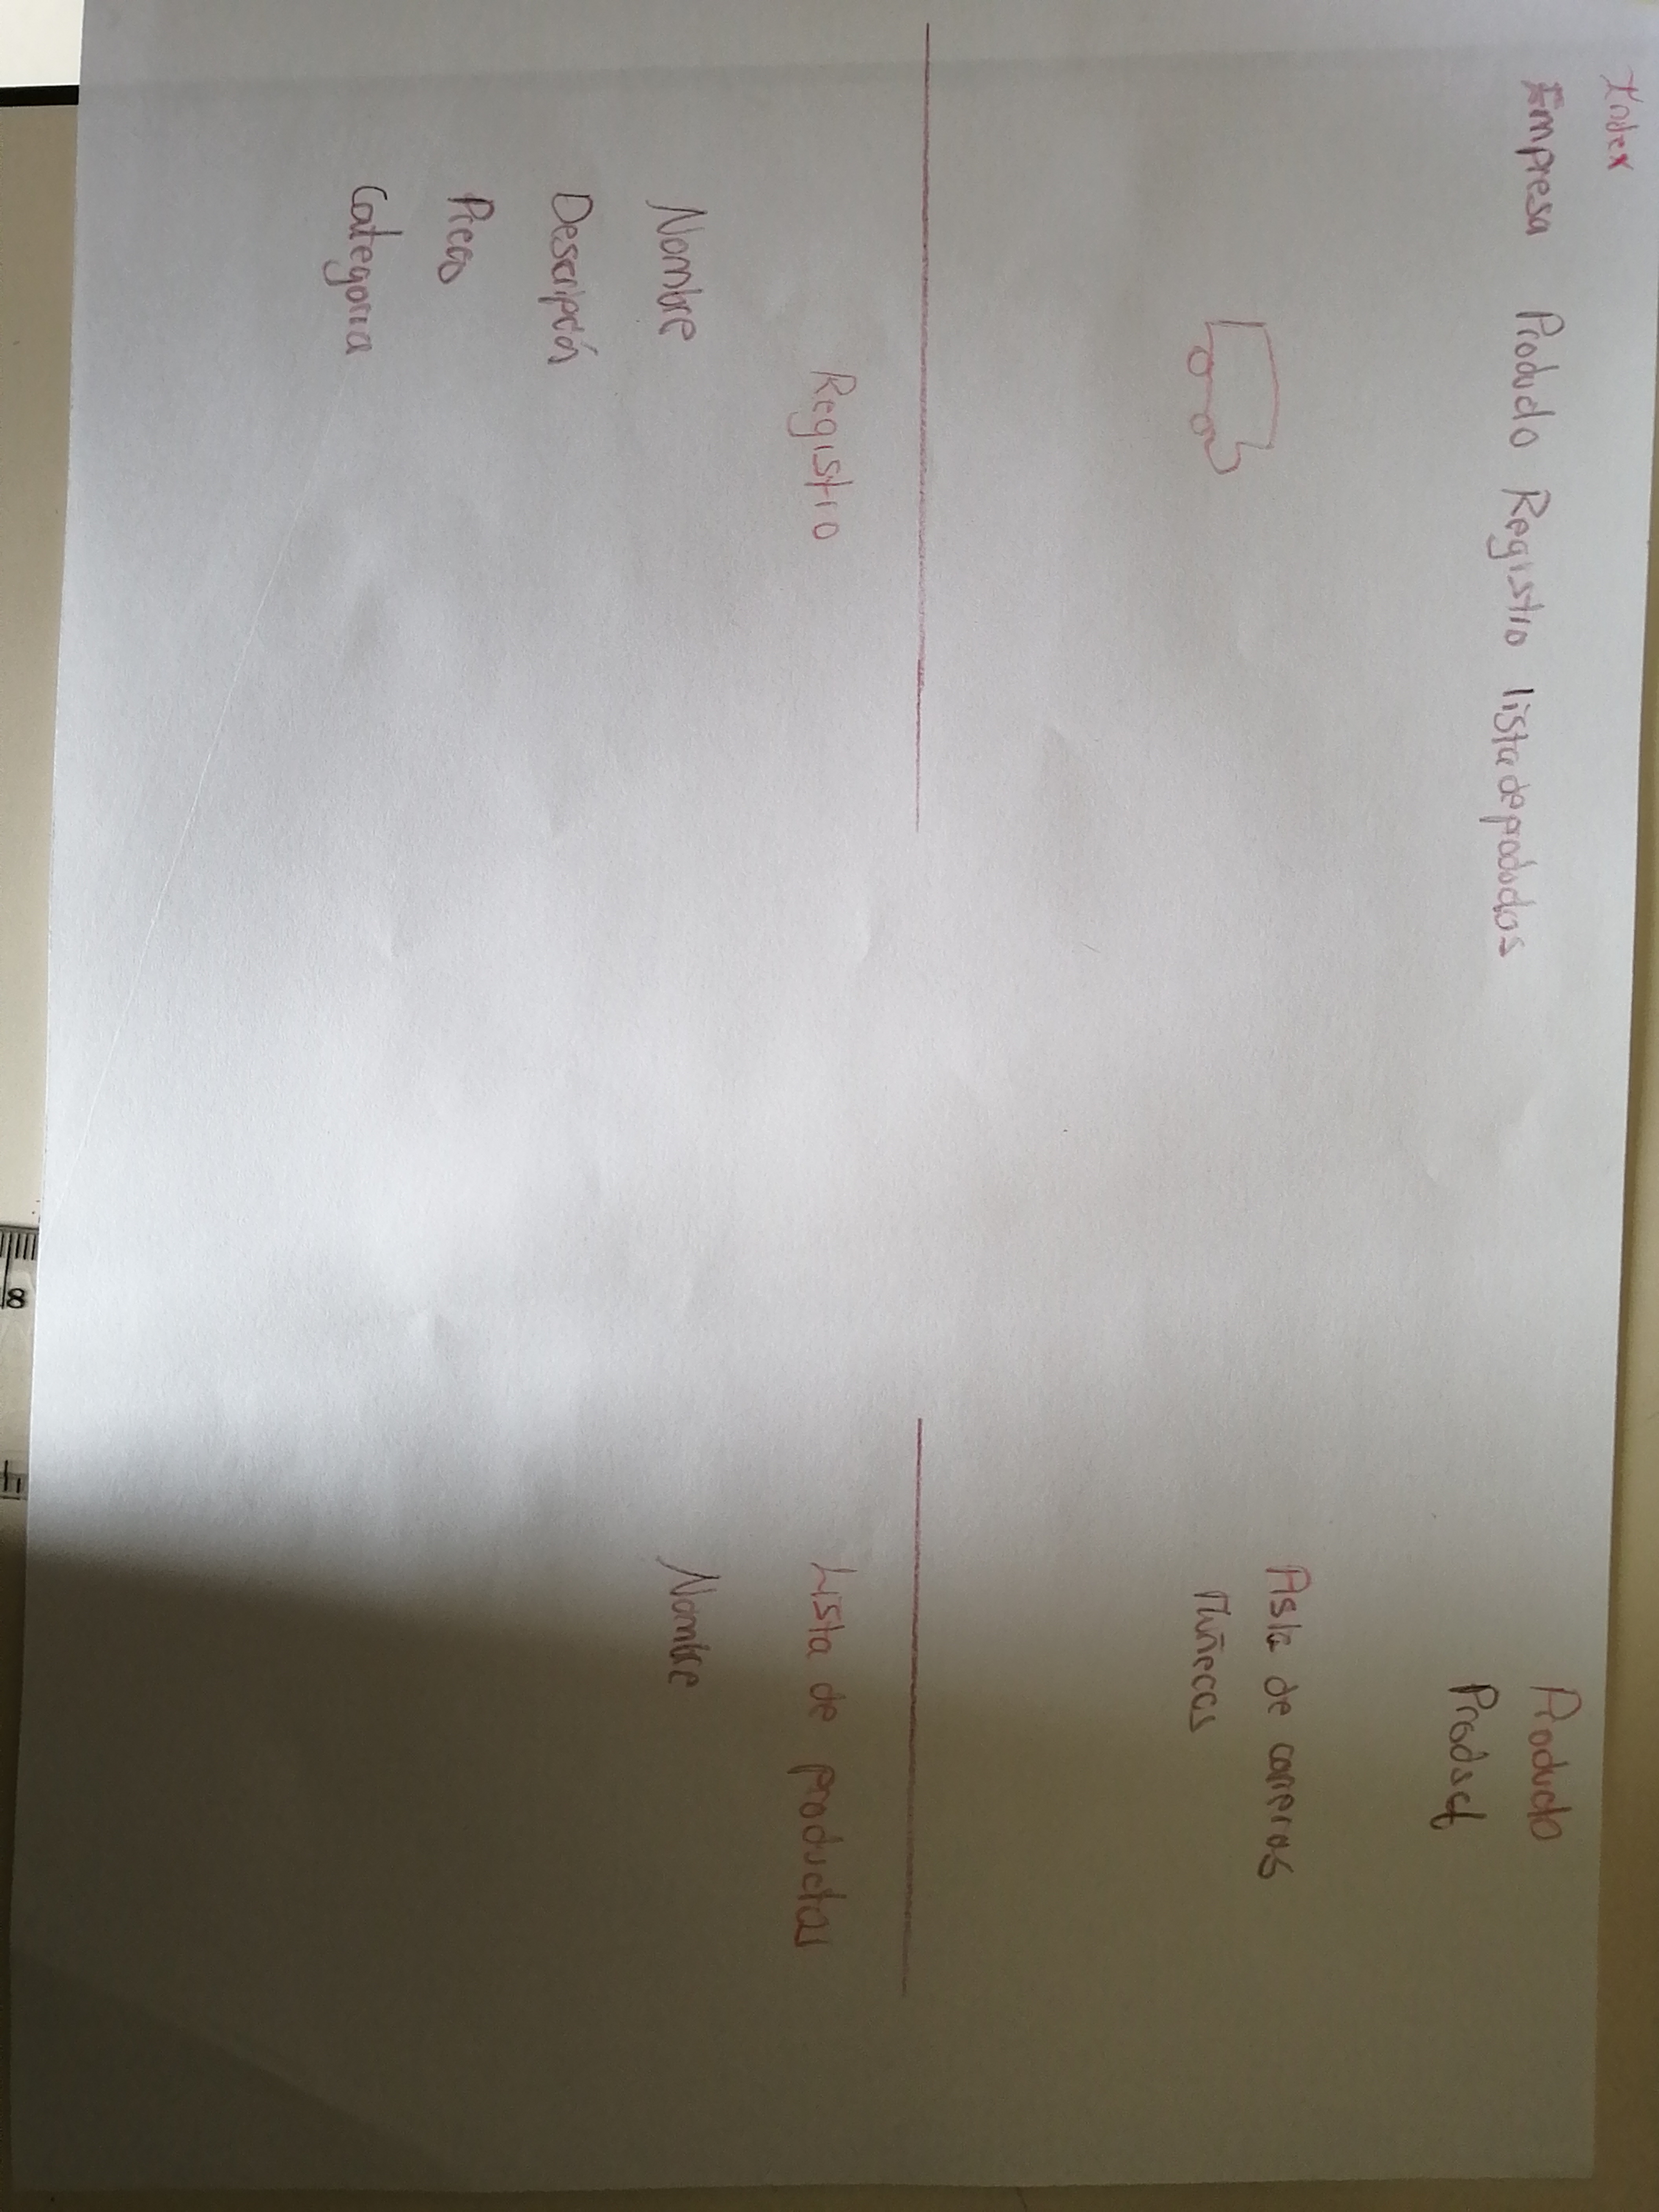 Index
Empresa Producto Registro lista de productos
Producto
Product
de carreras
Muñecas
Registro
Nombre
Descripción
Precio
Categoria
Lista de productos
Nombre
8